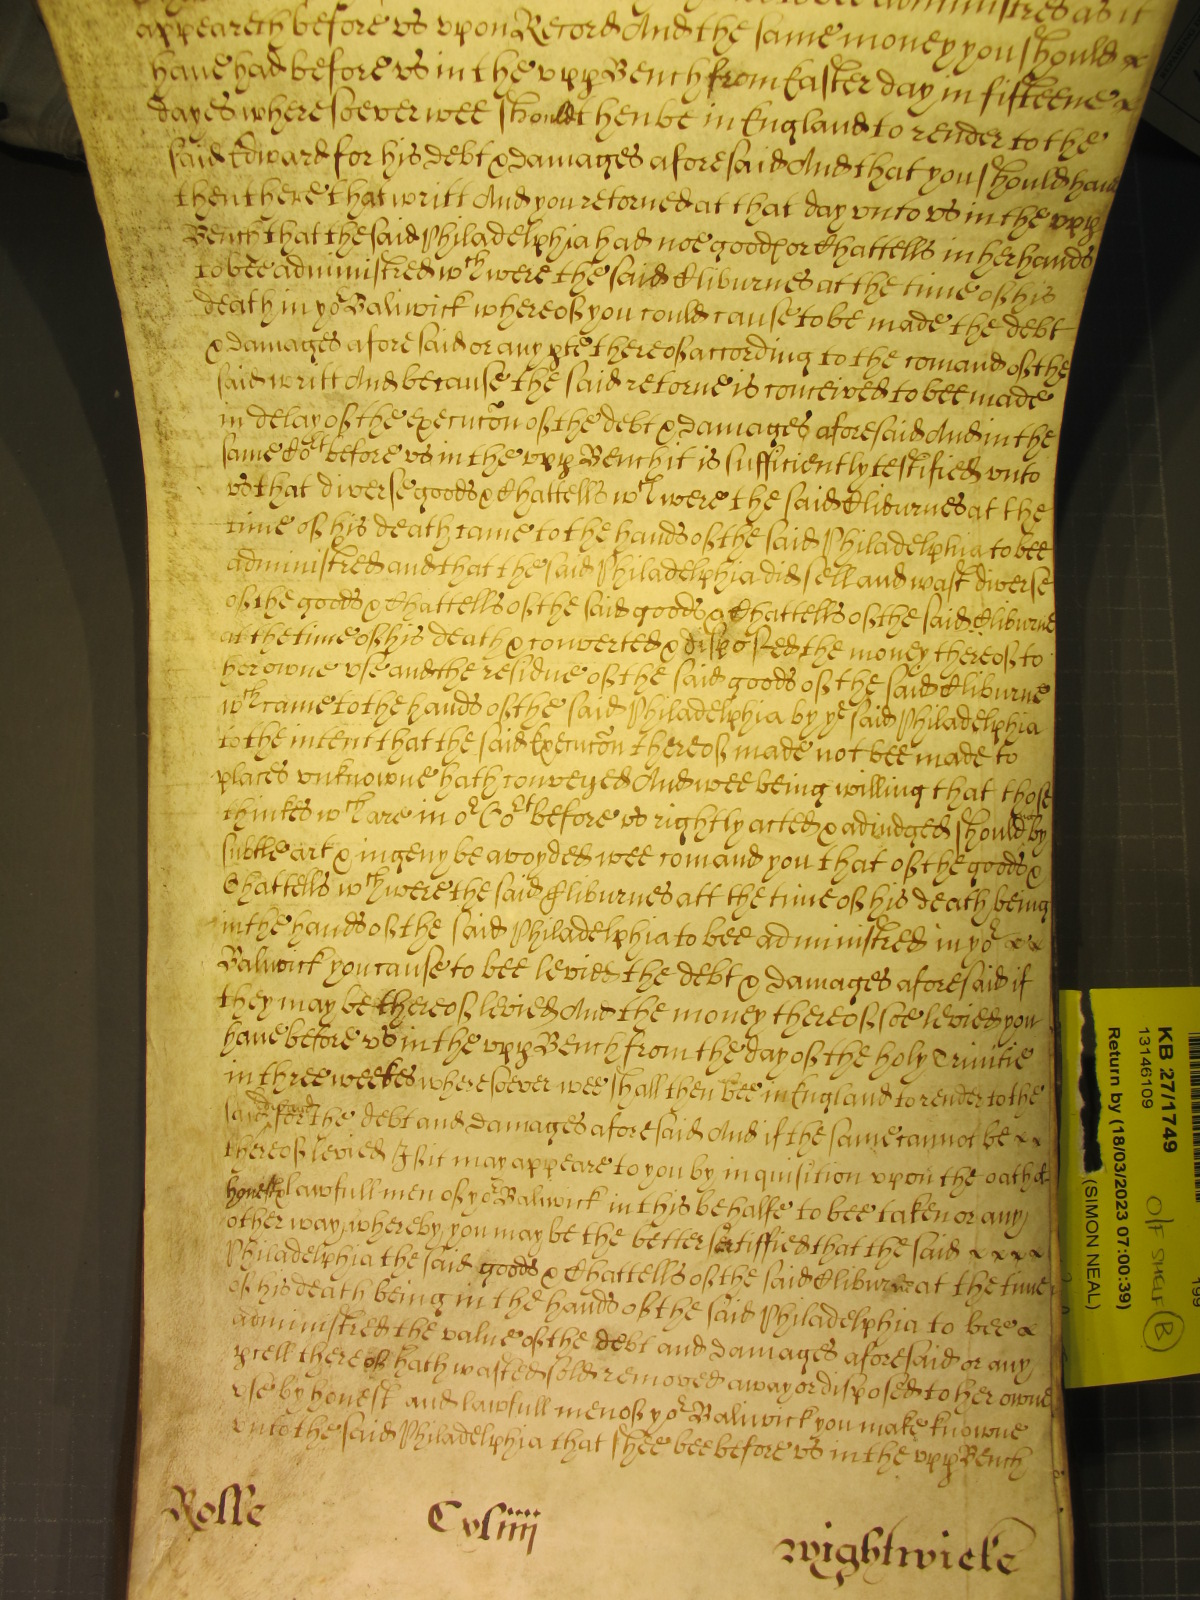 to bee administred as it
appeareth before us upon Record And the same money you should
have had before us in the upp Bench from Easter day in fifteene
dayes wheresoever wee should then be in England to render to the
said Edward for his debt & damages aforesaid And that you should have
then there that writt And you retorned at that day unto us in the upp
Bench that the said Philadelphia had noe goods or Chattells in her hands
to bee administred wch were the said Cliburnes at the time of his
death in yor Baliwick whereof you could cause to be made the debt
& damages aforesaid or any pte thereof according to the comand of the
said writt And because the said retorne is conceived to bee made
in delay of the execucon of the debt & damages aforesaid And in the
same Cort before us in the upp Bench it is sufficiently testified unto
us that diverse goods & Chattells wch were the said Cliburnes at the
time of his death came to the hands of the said Philadelphia to bee
administred and that the said Philadelphia did sell and wast diverse
of the goods & Chattells of the said goods & Chattells of the said Cliburne
at the time of his death & converted & disposed the money thereof to
her owne use and the residue of the said goods of the said Cliburne
wch came to the hands of the said Philadelphia by ye said Philadelphia
to the intent that the said Execucon thereof made not bee made to
places unknowne hath conveyed And wee being willing that those
thinkes wch are in or Cort before us rightly acted & adiudged should by
subtle art & ingeny be avoyded wee comand you that of the goods &
Chattells wch were the said Cliburnes att the time of his death being
in the hands of the said Philadelphia to bee administred in yor
Baliwick you cause to bee levied the debt & damages aforesaid if
they may be thereof levied And the money thereof soe levied you
have before us in the upp Bench from the day of the holy Trinitie
in three weekes wheresoever wee shall then bee in England to render to the
said Edward for the debt and damages aforesaid And if the same cannot be
thereof levied If it may appeare to you by inquisition upon the oath of
honest & lawfull men of yor Baliwick in this behalfe to bee taken or any
other way whereby you may be the better certiffied that the said
Philadelphia the said goods & Chattells of the said Cliburne at the time
of his death being in the hands of the said Philadelphia to bee
administred the value of the debt and damages aforesaid or any
pcell thereof hath wasted sold removed away or disposed to her owne
use by honest and lawfull men of yor Baliwick you make knowne
unto the said Philadelphia that shee bee before us in the upp Bench
Rolle Cvliiii Wightwicke
KB 27/1749
13146109
Return by (18/03/2023 07:00:39)
(SIMON NEAL)
O/F SHELF B
199